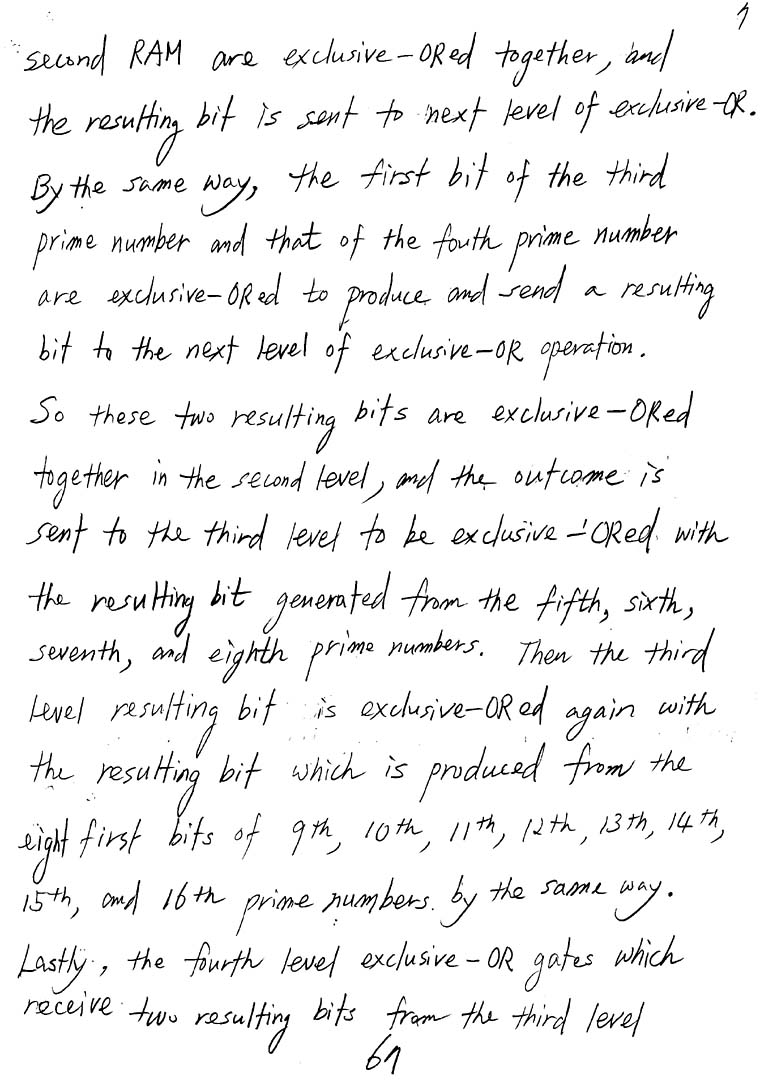 7
second RAM are exclusive-ORed together, and
the resulting bit is sent to next level of exclusive-OR.
By the same way, the first bit of the third
prime number and that of the fouth prime number
are exclusive-ORed to produce and send a resulting
bit to the next level of exclusive-OR operation.
So these two resulting bits are exclusive-ORed
together in the second level, and the outcome is
sent to the third level to be exclusive-ORed with
the resulting bit generated from the fifth, sixth,
seventh, and eighth prime numbers. Then the third
level resulting bit is exclusive-ORed again with
the resulting bit which is produced from the
eight first bits of 9th, 10th, 11th, 12th, 13th, 14th,
15th, and 16th prime numbers by the same way.
Lastly, the fourth level exclusive-OR gates which
receive two resulting bits from the third level
67